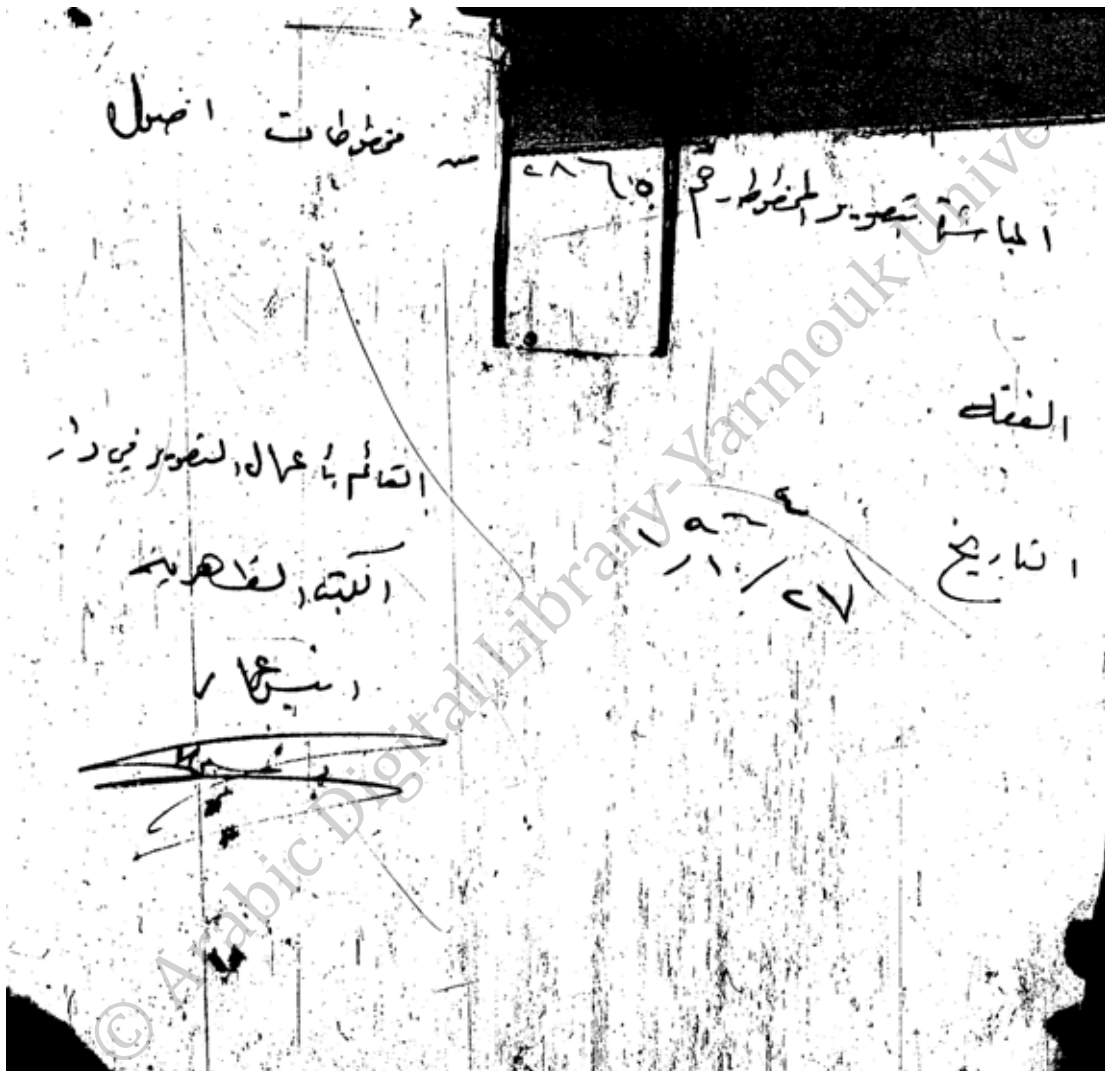 المباشرة بتصوير المخطوط رقم ٢٨٦٥ من مخطوطات اصول
الفقه
التاريخ ٢٧/١٠/١٩٦٤
القائم بأعمال التصوير في دار
الكتب الظاهرية
© Arabic Digital Library-Yarmouk Unive